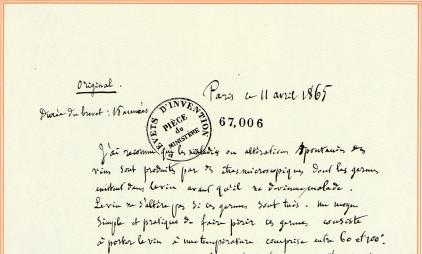 Original.
Paris ce 11 avril 1865
Durée du brevet : 15 années
BREVETS D'INVENTION
PIÈCE
du
MINISTÈRE
67,006
J'ai reconnu que les maladies ou altérations spontanées des
vins sont produits par des êtres microscopiques dont les germes
existent dans le vin avant qu'il ne devienne malade.
Le vin ne s'altère pas si ces germes sont tués. Un moyen
simple et pratique de faire périr ces germes consiste
à porter le vin à une température comprise entre 60 et 100°.